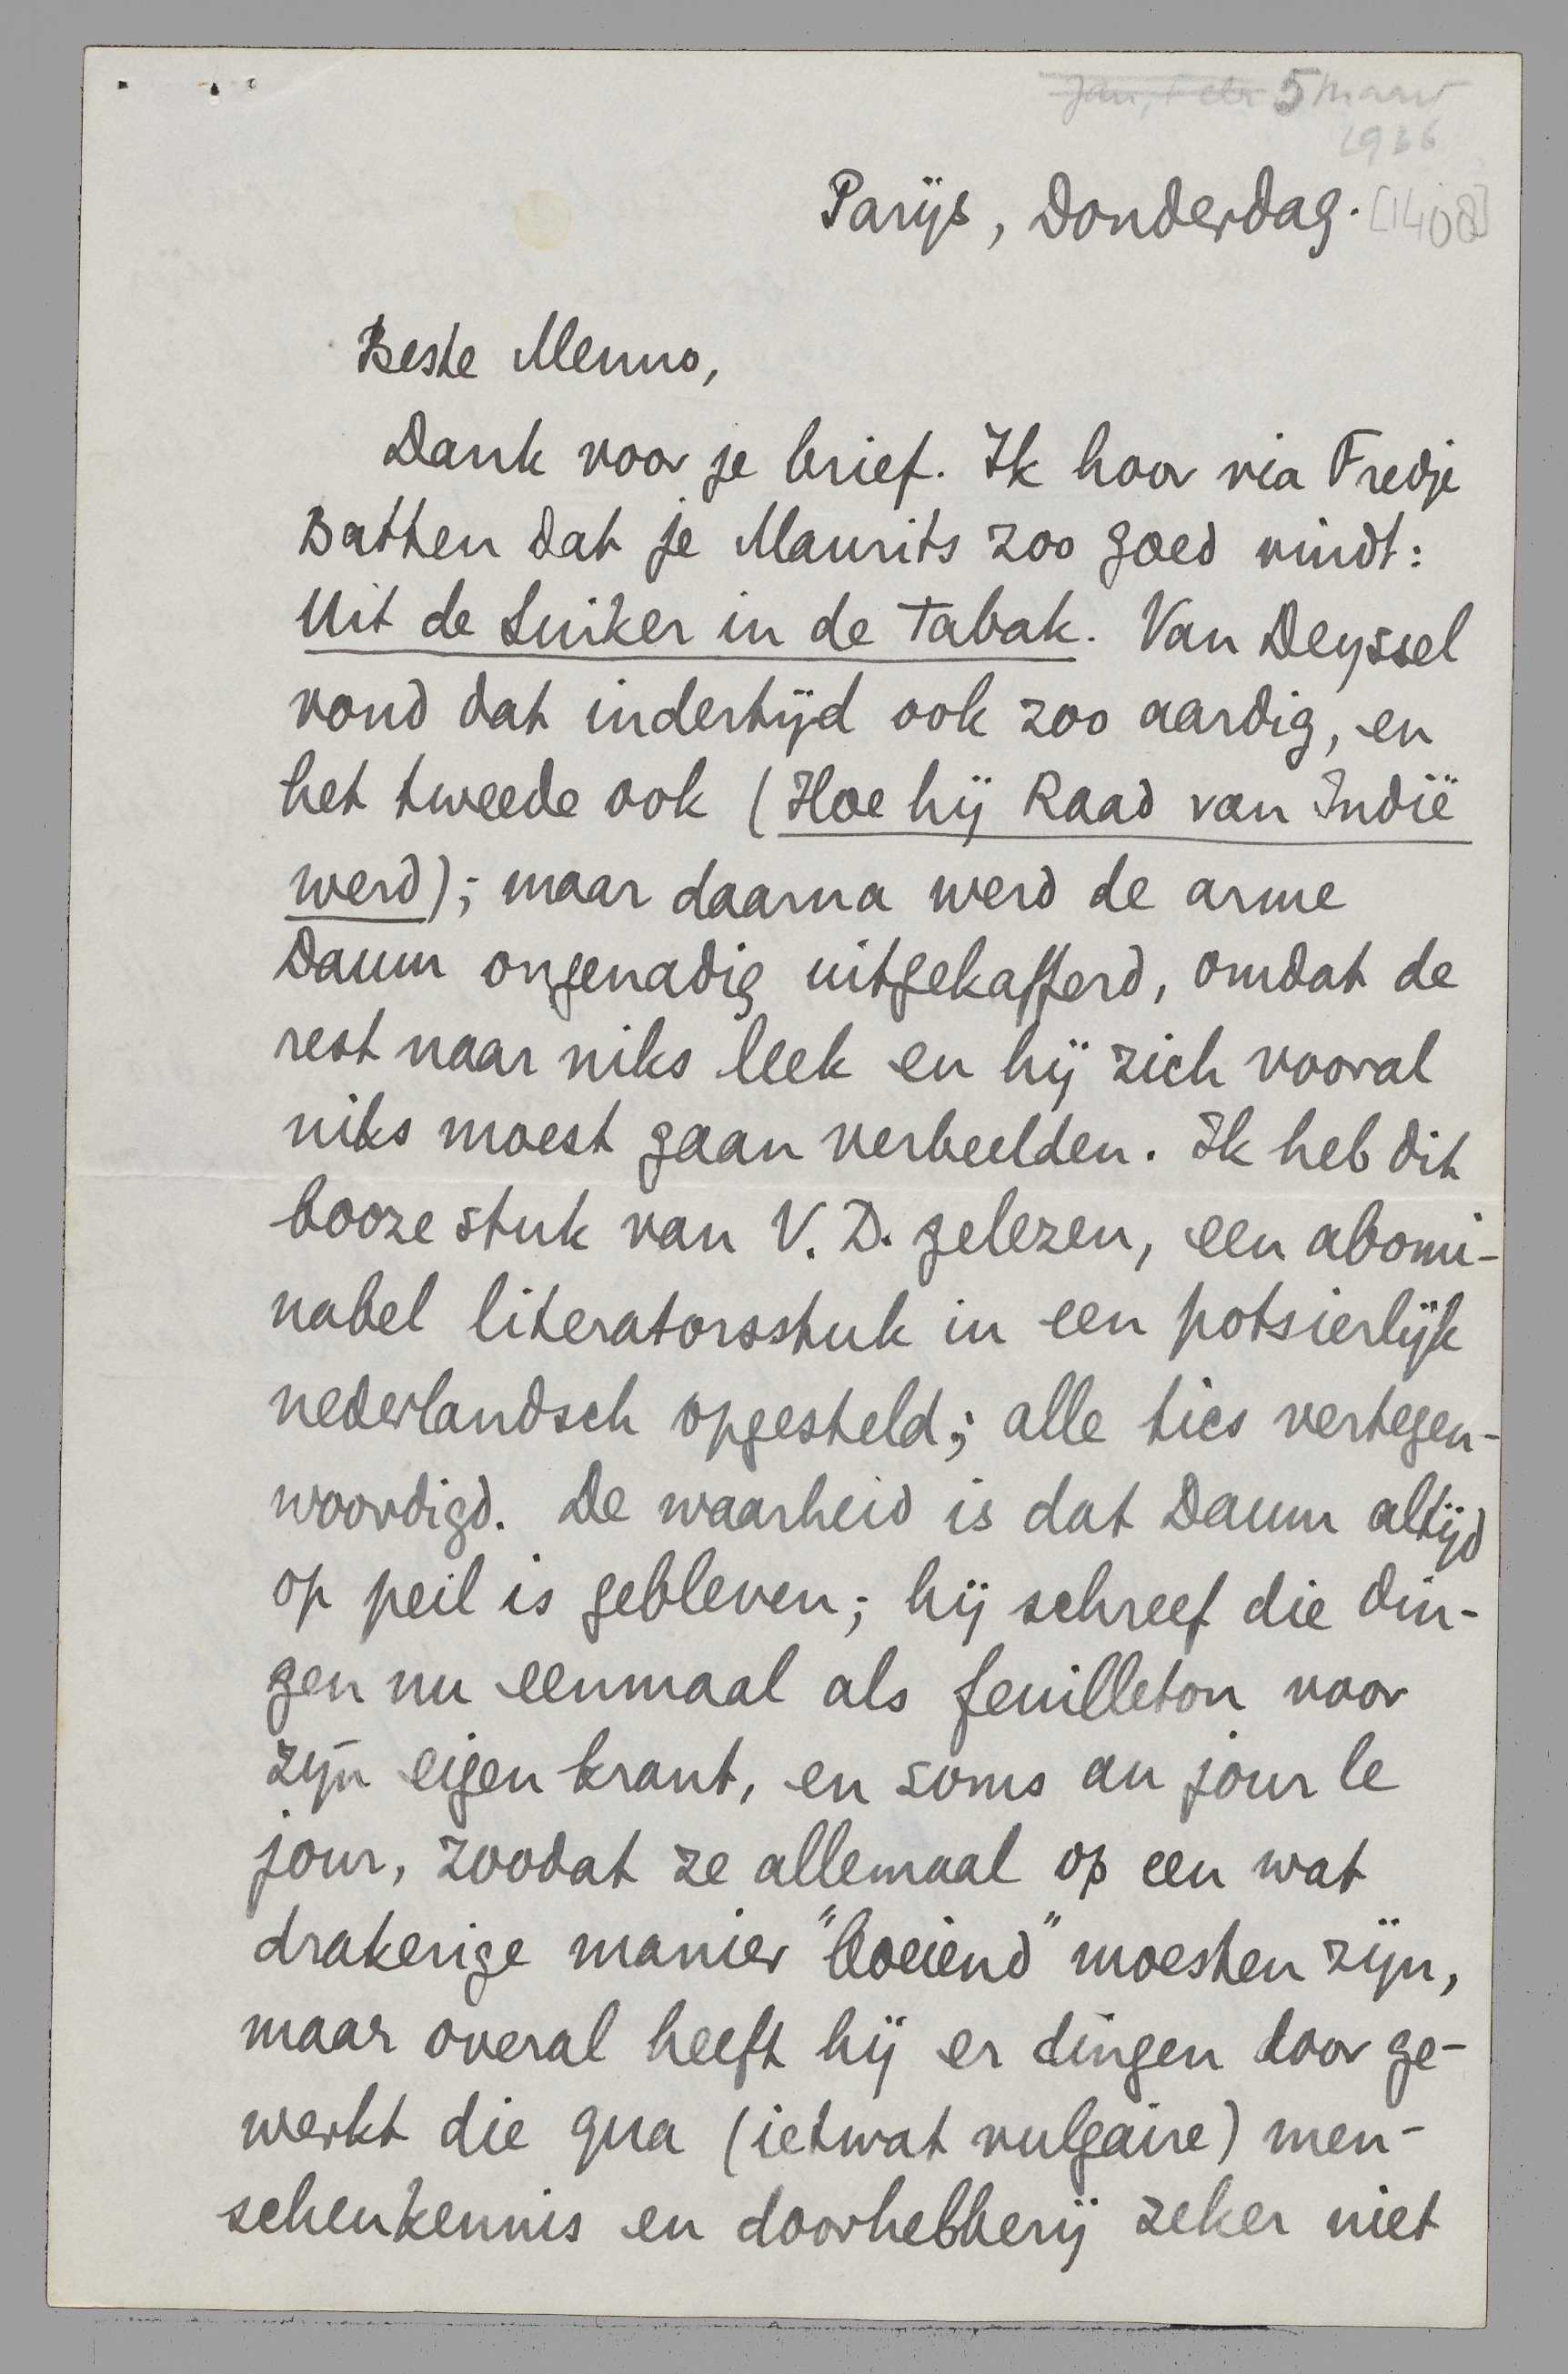 Jan, Febr 5 Maart
1936
Parijs, Donderdag. [1408]
Beste Menno,
Dank voor je brief. Ik hoor via Fredje
Batten dat je Maurits zoo goed vindt:
Uit de Suiker in de Tabak. Van Deyssel
vond dat indertijd ook zoo aardig, en
het tweede ook (Hoe hij Raad van Indië
werd); maar daarna werd de arme
Daum ongenadig uitgekafferd, omdat de
rest naar niks leek en hij zich vooral
niks moest gaan verbeelden. Ik heb dit
booze stuk van V. D. gelezen, een abomi-
nabel literatorsstuk in een potsierlijk
nederlandsch opgesteld; alle tics vertegen-
woordigd. De waarheid is dat Daum altijd
op peil is gebleven; hij schreef die din-
gen nu eenmaal als feuilleton voor
zijn eigen krant, en soms au jour le
jour, zoodat ze allemaal op een wat
drakerige manier "boeiend" moesten zijn,
maar overal heeft hij er dingen door ge-
werkt die qua (ietwat vulgaire) men-
schenkennis en doorhebberij zeker niet